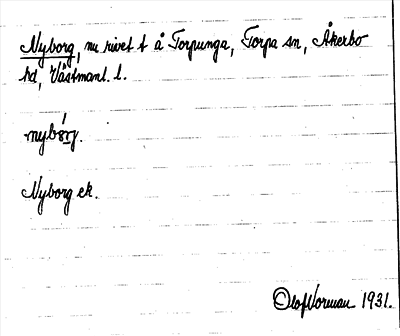 Nyborg, nu rivet t å Torpunga, Torpa sn, Åkerbo
hd, Västmanl. l.
nybórj.
Nyborg ek.
Olof Norman 1931.